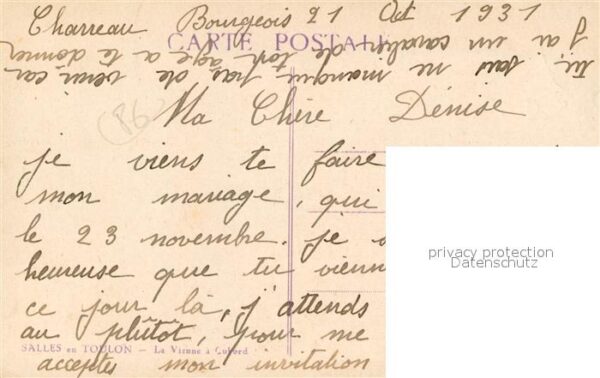 Charreau Bourgeois 21 Oct 1931
CARTE POSTALE
j'ai un cavalier de ton age a te donner
tu sais ne manque pas de venir car
Ma Chère Dénise
je viens te faire
mon mariage, qui
le 23 novembre. je
heureuse que tu vienn
ce jour là, j'attends
au plûtôt, pour me
SALLES en TOULON - La Vienne à Cubord
acceptes mon invitation
privacy protection
Datenschutz